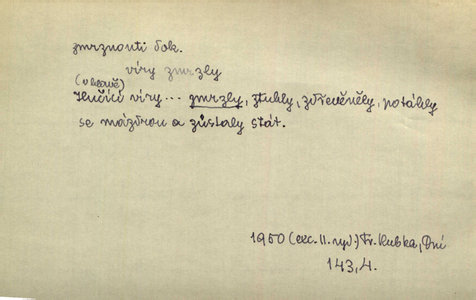 zmrznouti dok.
víry zmrzly
(v hlavě)
Hučící víry... zmrzly, ztuhly, zdřevěněly, potáhly
se mázdrou a zůstaly stát.
1950 (exc. II. vyd.) Fr. Kubka, Dni
143,4.